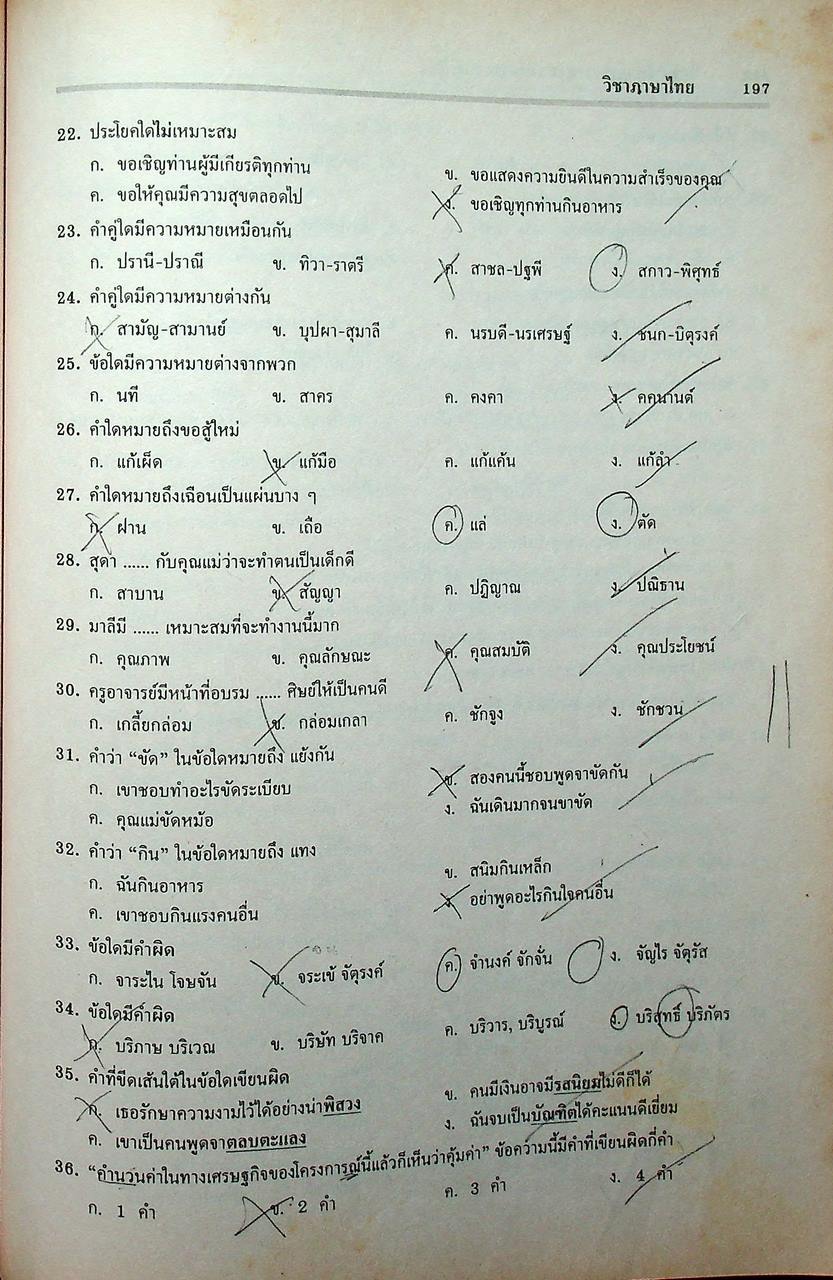 วิชาภาษาไทย 197
22. ประโยคใดไม่เหมาะสม
ก. ขอเชิญท่านผู้มีเกียรติทุกท่าน ข. ขอแสดงความยินดีในความสำเร็จของคุณ
ค. ขอให้คุณมีความสุขตลอดไป ง. ขอเชิญทุกท่านกินอาหาร
23. คำคู่ใดมีความหมายเหมือนกัน
ก. ปรานี-ปราณี ข. ทิวา-ราตรี ค. สาชล-ปฐพี ง. สกาว-พิศุทธ์
24. คำคู่ใดมีความหมายต่างกัน
ก. สามัญ-สามานย์ ข. บุปผา-สุมาลี ค. นรบดี-นรเศรษฐ์ ง. ชนก-บิตุรงค์
25. ข้อใดมีความหมายต่างจากพวก
ก. นที ข. สาคร ค. คงคา ง. คคนานต์
26. คำใดหมายถึงขอสู้ใหม่
ก. แก้เผ็ด ข. แก้มือ ค. แก้แค้น ง. แก้ลำ
27. คำใดหมายถึงเฉือนเป็นแผ่นบาง ๆ
ก. ฝาน ข. เถือ ค. แล่ ง. ตัด
28. สุดา ...... กับคุณแม่ว่าจะทำตนเป็นเด็กดี
ก. สาบาน ข. สัญญา ค. ปฏิญาณ ง. ปณิธาน
29. มาลีมี ...... เหมาะสมที่จะทำงานนี้มาก
ก. คุณภาพ ข. คุณลักษณะ ค. คุณสมบัติ ง. คุณประโยชน์
30. ครูอาจารย์มีหน้าที่อบรม ...... ศิษย์ให้เป็นคนดี
ก. เกลี้ยกล่อม ข. กล่อมเกลา ค. ชักจูง ง. ชักชวน
31. คำว่า “ขัด” ในข้อใดหมายถึง แย้งกัน
ก. เขาชอบทำอะไรขัดระเบียบ ข. สองคนนี้ชอบพูดจาขัดกัน
ค. คุณแม่ขัดหม้อ ง. ฉันเดินมากจนขาขัด
32. คำว่า “กิน” ในข้อใดหมายถึง แทง
ก. ฉันกินอาหาร ข. สนิมกินเหล็ก
ค. เขาชอบกินแรงคนอื่น ง. อย่าพูดอะไรกินใจคนอื่น
33. ข้อใดมีคำผิด
ก. จาระไน โจษจัน ข. จระเข้ จัตุรงค์ ค. จำนงค์ จักจั่น ง. จัญไร จัตุรัส
34. ข้อใดมีคำผิด
ก. บริภาษ บริเวณ ข. บริษัท บริจาค ค. บริวาร, บริบูรณ์ ง. บริสุทธิ์ บริภัตร
35. คำที่ขีดเส้นใต้ในข้อใดเขียนผิด
ก. เธอรักษาความงามไว้ได้อย่างน่าพิสวง ข. คนมีเงินอาจมีรสนิยมไม่ดีก็ได้
ค. เขาเป็นคนพูดจาตลบตะแลง ง. ฉันจบเป็นบัณฑิตได้คะแนนดีเยี่ยม
36. “คำนวนค่าในทางเศรษฐกิจของโครงการณ์นี้แล้วก็เห็นว่าคุ้มค่า” ข้อความนี้มีคำที่เขียนผิดกี่คำ
ก. 1 คำ ข. 2 คำ ค. 3 คำ ง. 4 คำ